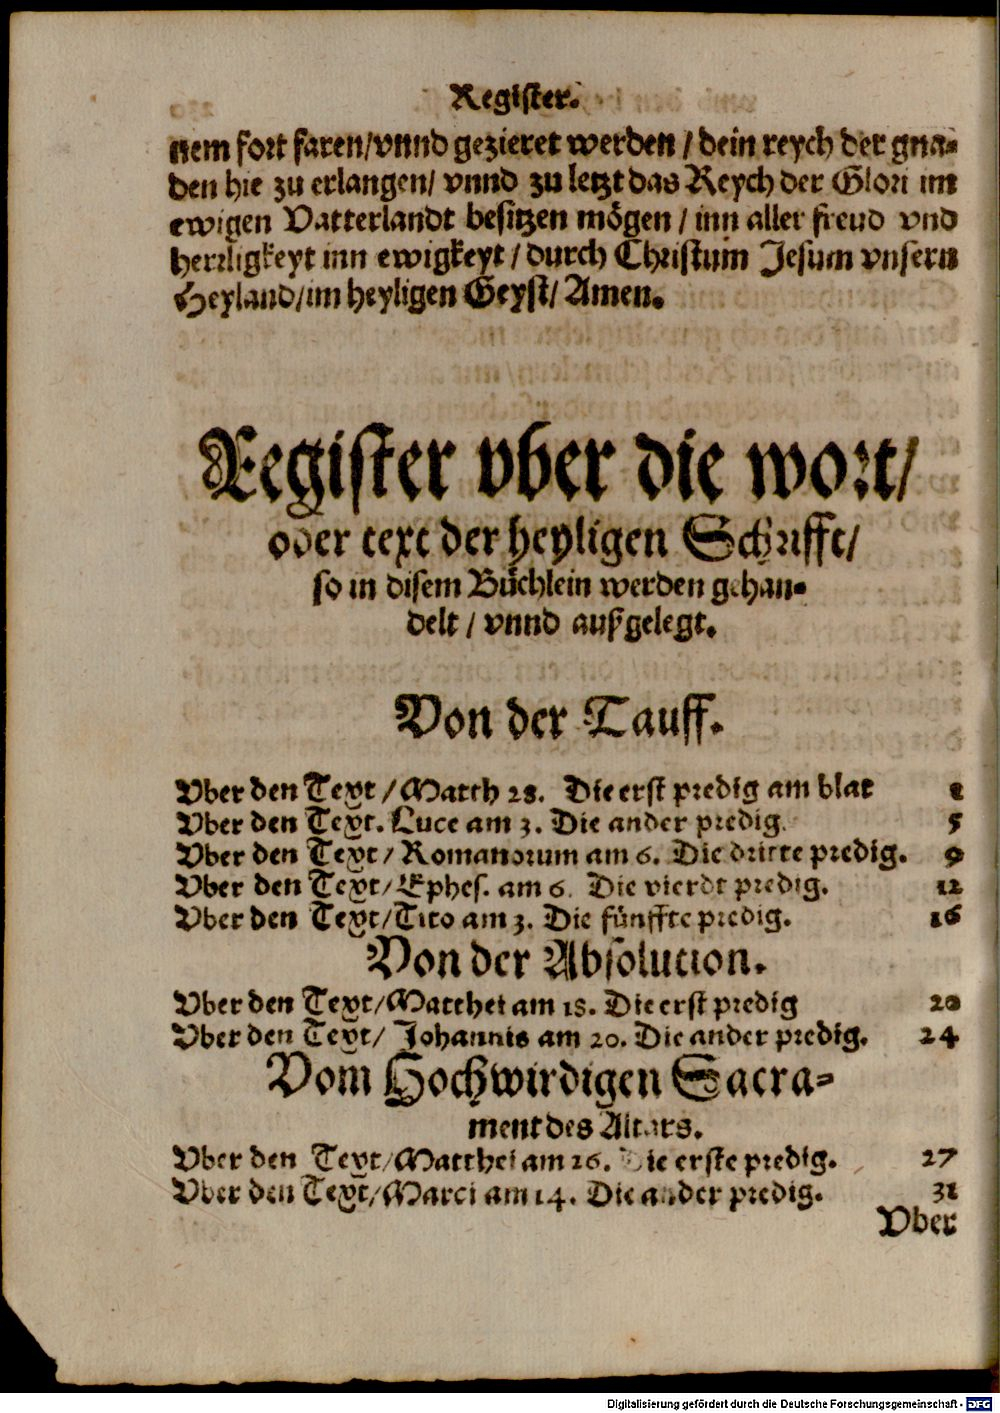 Register.
nem fort faren/vnnd gezieret werden / dein reych der gna-
den hie zu erlangen/ vnnd zu letzt das Reych der Glori im
ewigen Vatterlandt besitzen mögen / inn aller freud vnd
herrligkeyt inn ewigkeyt / durch Christum Jesum vnsern
Heyland/im heyligen Geyst/ Amen.
Register vber die wort/
oder text der heyligen Schrifft/
so in disem Büchlein werden gehan-
delt / vnnd außgelegt.
Von der Tauff.
Vber den Text / Matth 28. Die erst predig am blat 1
Vber den Text. Luce am 3. Die ander predig. 5
Vber den Text / Romanorum am 6. Die dritte predig. 9
Vber den Text/ Ephes. am 6. Die vierdt predig. 12
Vber den Text/Tito am 3. Die fünffte predig. 16
Von der Absolution.
Vber den Text/Matthei am 18. Die erst predig 20
Vber den Text/ Johannis am 20. Die ander predig. 24
Vom Hochwirdigen Sacra-
ment des Altars.
Vber den Text/Matthei am 26. Die erste predig. 27
Vber den Text/Marci am 14. Die ander predig. 31
Vber
Digitalisierung gefördert durch die Deutsche Forschungsgemeinschaft - DFG